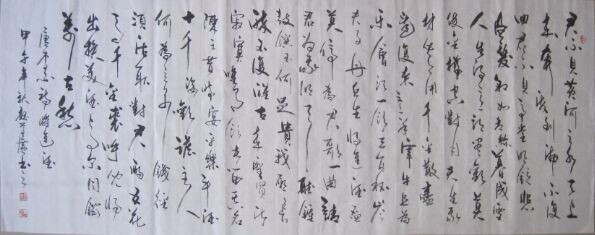 君不見黃河之水天上
來奔流到海不復
回君不見高堂明鏡悲
白髮朝如青絲暮成雪
人生得意須盡歡莫
使金樽空對月天生我
材必有用千金散盡
還復來烹羊宰牛且為
樂會須一飲三百杯岑
夫子丹丘生將進酒盃
莫停為君歌一曲請
君為我傾耳聽鐘
鼓饌玉何足貴但願長
醉不復醒古來聖賢皆
寂寞唯有飲者留其名
陳王昔時宴平樂斗酒
十千恣歡謔主人
何為言少錢徑
須沽取對君酌五花
馬千金裘呼兒將
出換美酒與爾同銷
萬古愁
唐李白詩將進酒
甲午年秋 書